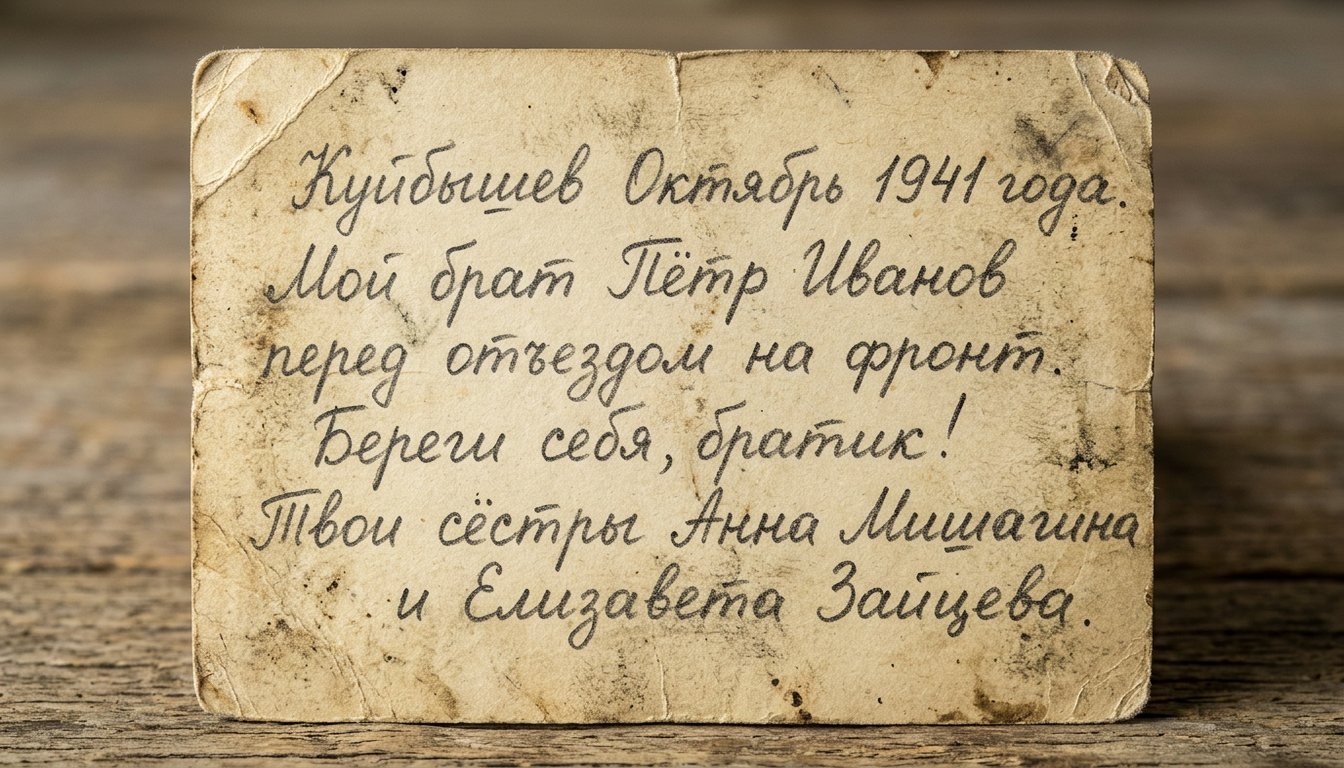 Куйбышев Октябрь 1941 года.
Мой брат Пётр Иванов
перед отъездом на фронт.
Береги себя, братик!
Твои сёстры Анна Мишагина
и Елизавета Зайцева.